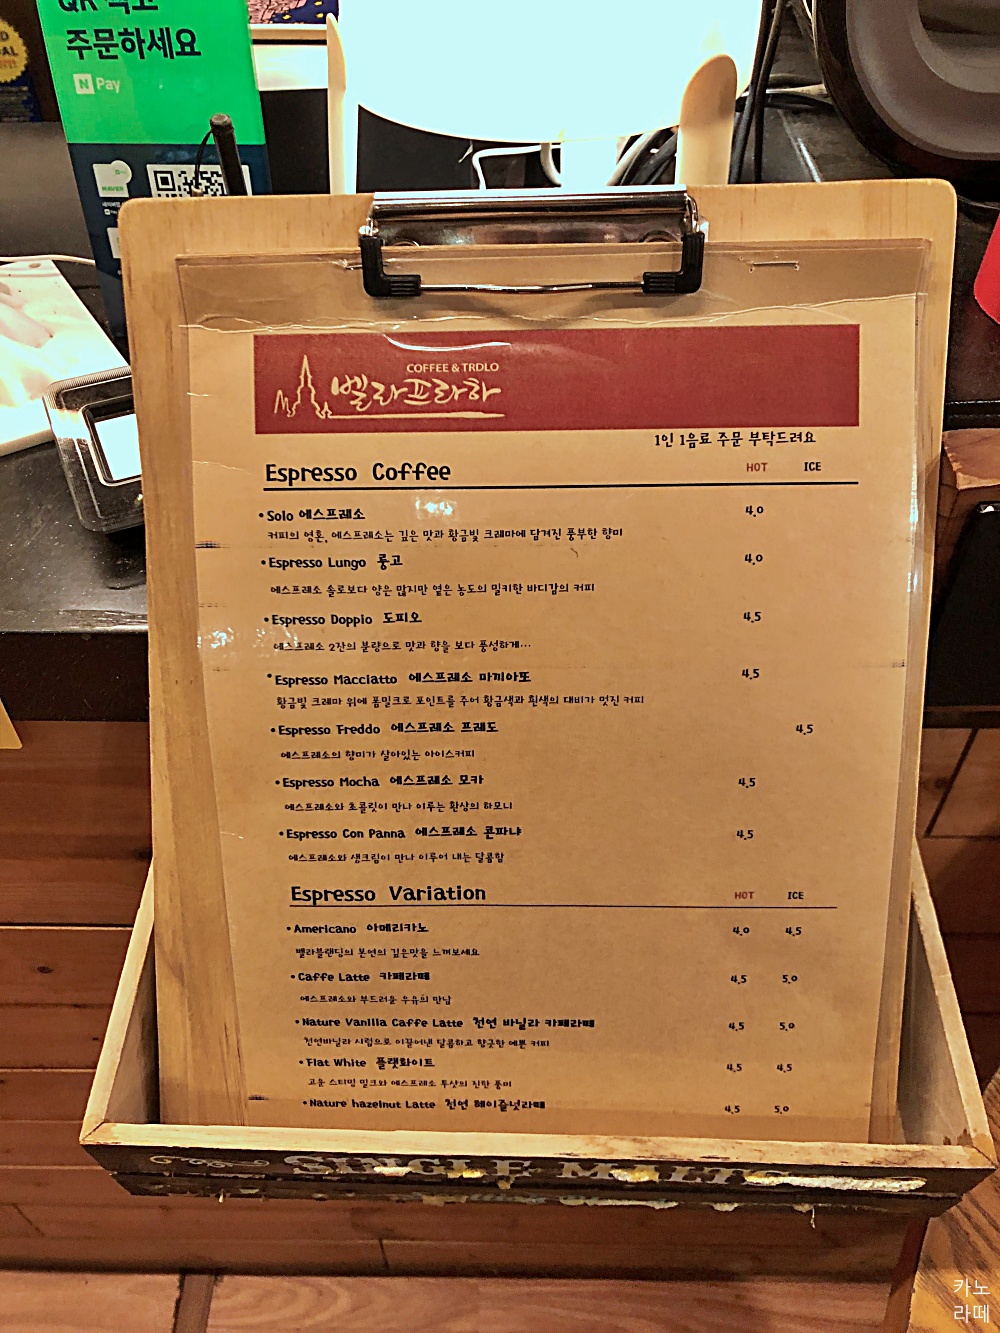 QR 찍고
주문하세요
N Pay
COFFEE & TRDLO
벨라프라하
1인 1음료 주문 부탁드려요
Espresso Coffee HOT ICE
•Solo 에스프레소 4.0
커피의 영혼, 에스프레소는 깊은 맛과 황금빛 크레마에 담겨진 풍부한 향미
•Espresso Lungo 룽고 4.0
에스프레소 솔로보다 양은 많지만 옅은 농도의 밀키한 바디감의 커피
•Espresso Doppio 도피오 4.5
에스프레소 2잔의 분량으로 맛과 향을 보다 풍성하게...
•Espresso Macciatto 에스프레소 마끼아또 4.5
황금빛 크레마 위에 폼밀크로 포인트를 주어 황금색과 흰색의 대비가 멋진 커피
•Espresso Freddo 에스프레소 프레도 4.5
에스프레소의 향미가 살아있는 아이스커피
•Espresso Mocha 에스프레소 모카 4.5
에스프레소와 초콜릿이 만나 이루는 환상의 하모니
•Espresso Con Panna 에스프레소 콘파냐 4.5
에스프레소와 생크림이 만나 이루어 내는 달콤함
Espresso Variation HOT ICE
•Americano 아메리카노 4.0 4.5
벨라블랜딩의 본연의 깊은맛을 느껴보세요
•Caffe Latte 카페라떼 4.5 5.0
에스프레소와 부드러운 우유의 만남
•Nature Vanilla Caffe Latte 천연 바닐라 카페라떼 4.5 5.0
천연바닐라 시럽으로 이끌어낸 달콤하고 향긋한 예쁜 커피
•Flat White 플랫화이트 4.5 4.5
고운 스티밍 밀크와 에스프레소 투샷의 진한 풍미
•Nature hazelnut Latte 천연 헤이즐넛라떼 4.5 5.0
SINGLE MALT
카노
라떼